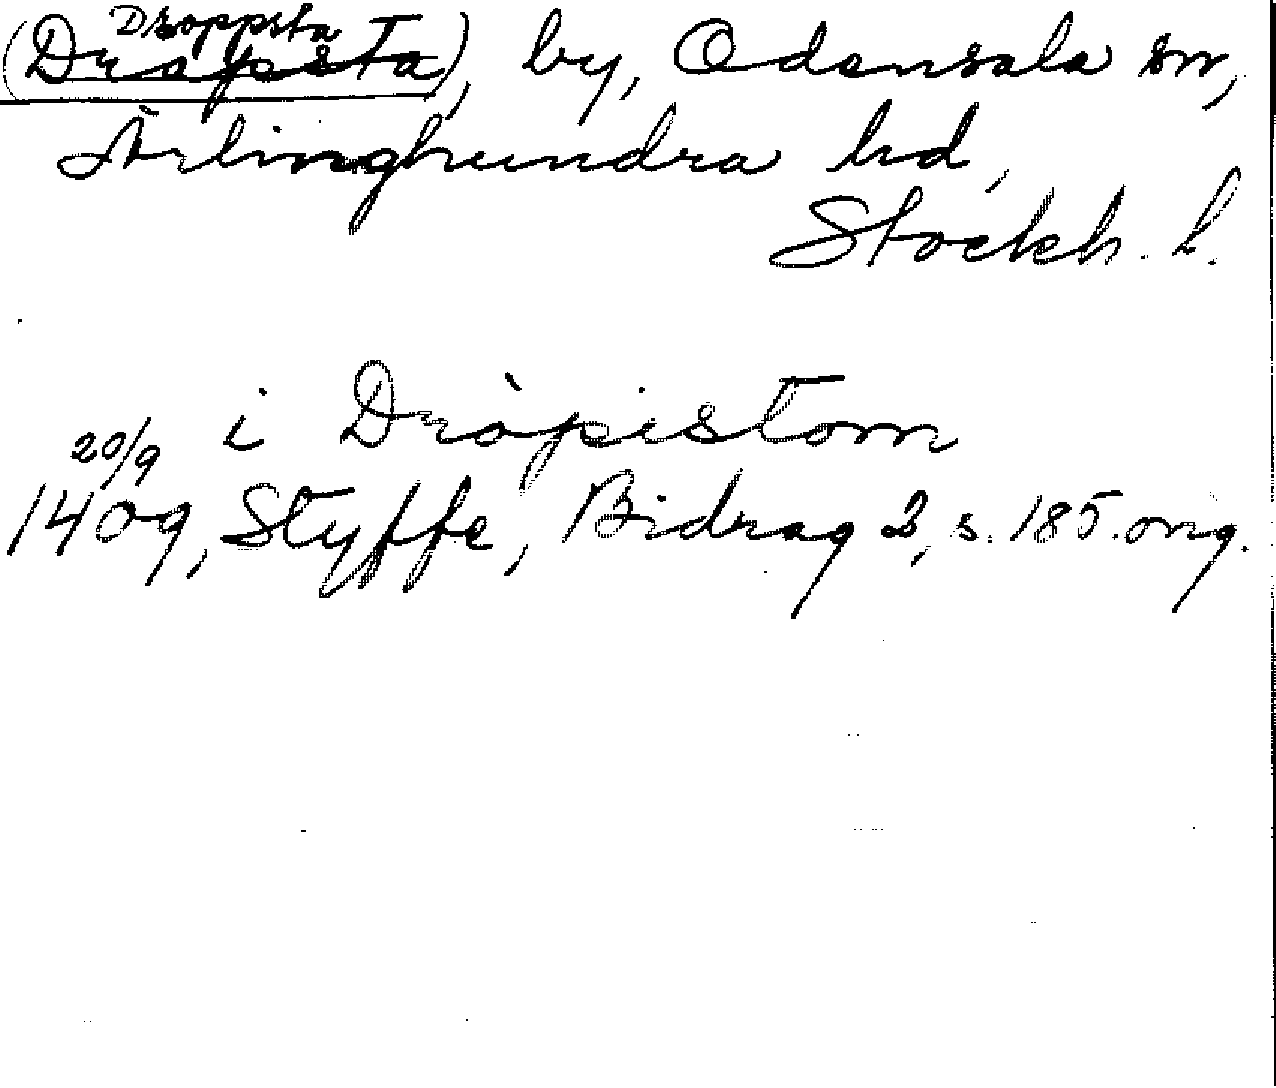 Droppsta
(Dråpsta), by, Odensala sn,
Ärlinghundra hd,
Stockh. l.
i Dråpistom
20/9
1409, Styffe, Bidrag 2, s. 185. orig.